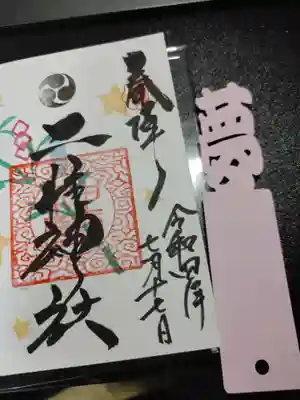 奉拝
二柱神社
令和四年
七月十七日
夢